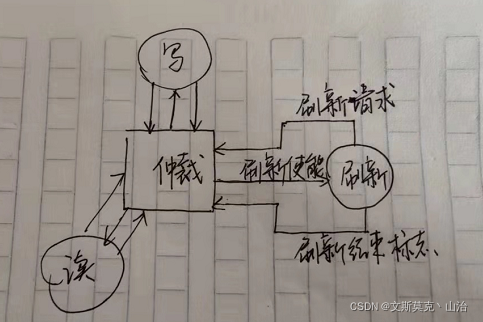 写
刷新请求
仲裁
刷新使能
刷新
读
刷新结束标志、
CSDN @文斯莫克丶山治